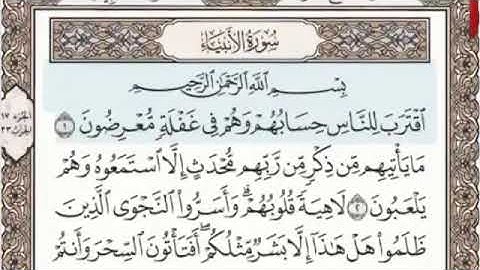 سُورَةُ الأَنبِيَاءِ
بِسْمِ ٱللَّهِ ٱلرَّحْمَٰنِ ٱلرَّحِيمِ
ٱقْتَرَبَ لِلنَّاسِ حِسَابُهُمْ وَهُمْ فِى غَفْلَةٍ مُّعْرِضُونَ ١
مَا يَأْتِيهِم مِّن ذِكْرٍ مِّن رَّبِّهِم مُّحْدَثٍ إِلَّا ٱسْتَمَعُوهُ وَهُمْ
يَلْعَبُونَ ٢ لَاهِيَةً قُلُوبُهُمْ ۗ وَأَسَرُّوا۟ ٱلنَّجْوَى ٱلَّذِينَ
ظَلَمُوا۟ هَلْ هَٰذَآ إِلَّا بَشَرٌ مِّثْلُكُمْ ۖ أَفَتَأْتُونَ ٱلسِّحْرَ وَأَنتُمْ
الجزء ١٧